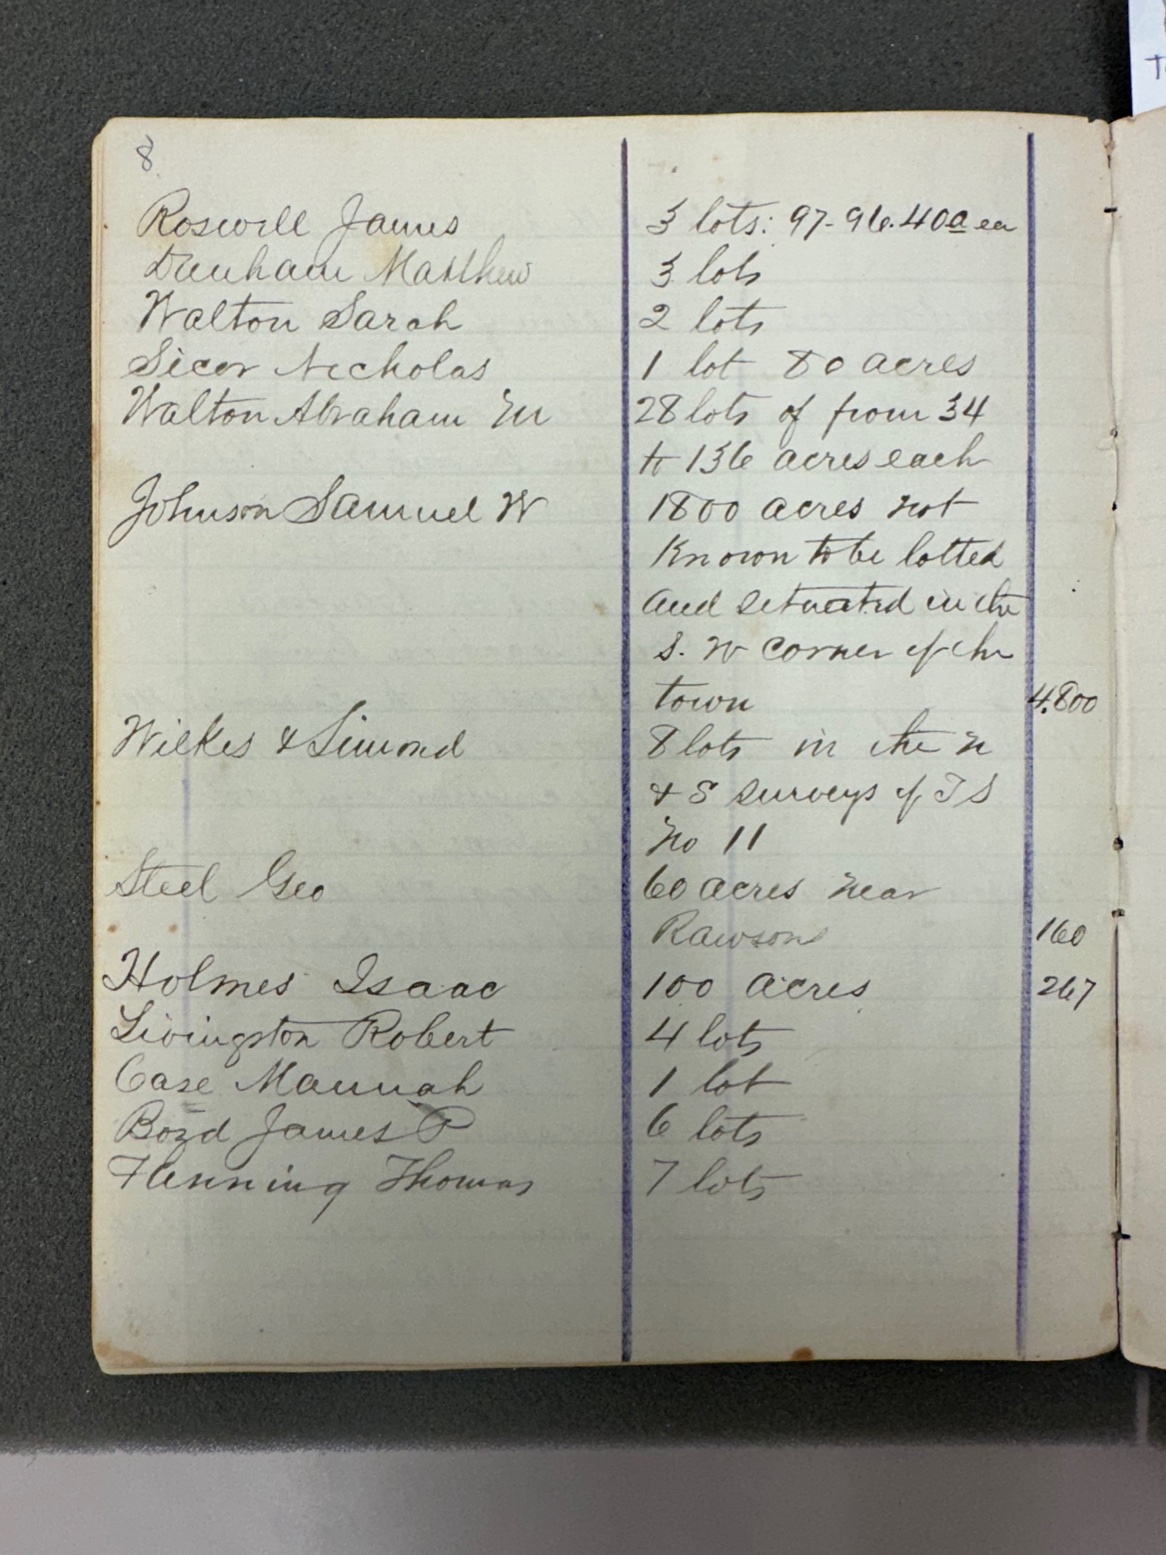 8
Roswell James 3 lots: 97-96.40a ea
Dunham Matthew 3 lots
Walton Sarah 2 lots
Sicor Nicholas 1 lot 80 acres
Walton Abraham M 28 lots of from 34
to 136 acres each
Johnson Samuel W 1800 acres not
Known to be lotted
and situated in the
S. W corner of the
town 4.800
Wilkes & Simond 8 lots in the N
& S surveys of TS
No 11
Steel Geo 60 acres near
Rawsons 160
Holmes Isaac 100 acres 267
Livingston Robert 4 lots
Case Mannah 1 lot
Boyd James P 6 lots
Flenning Thomas 7 lots